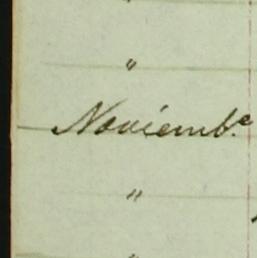 "
"
Noviemb.e
"
"